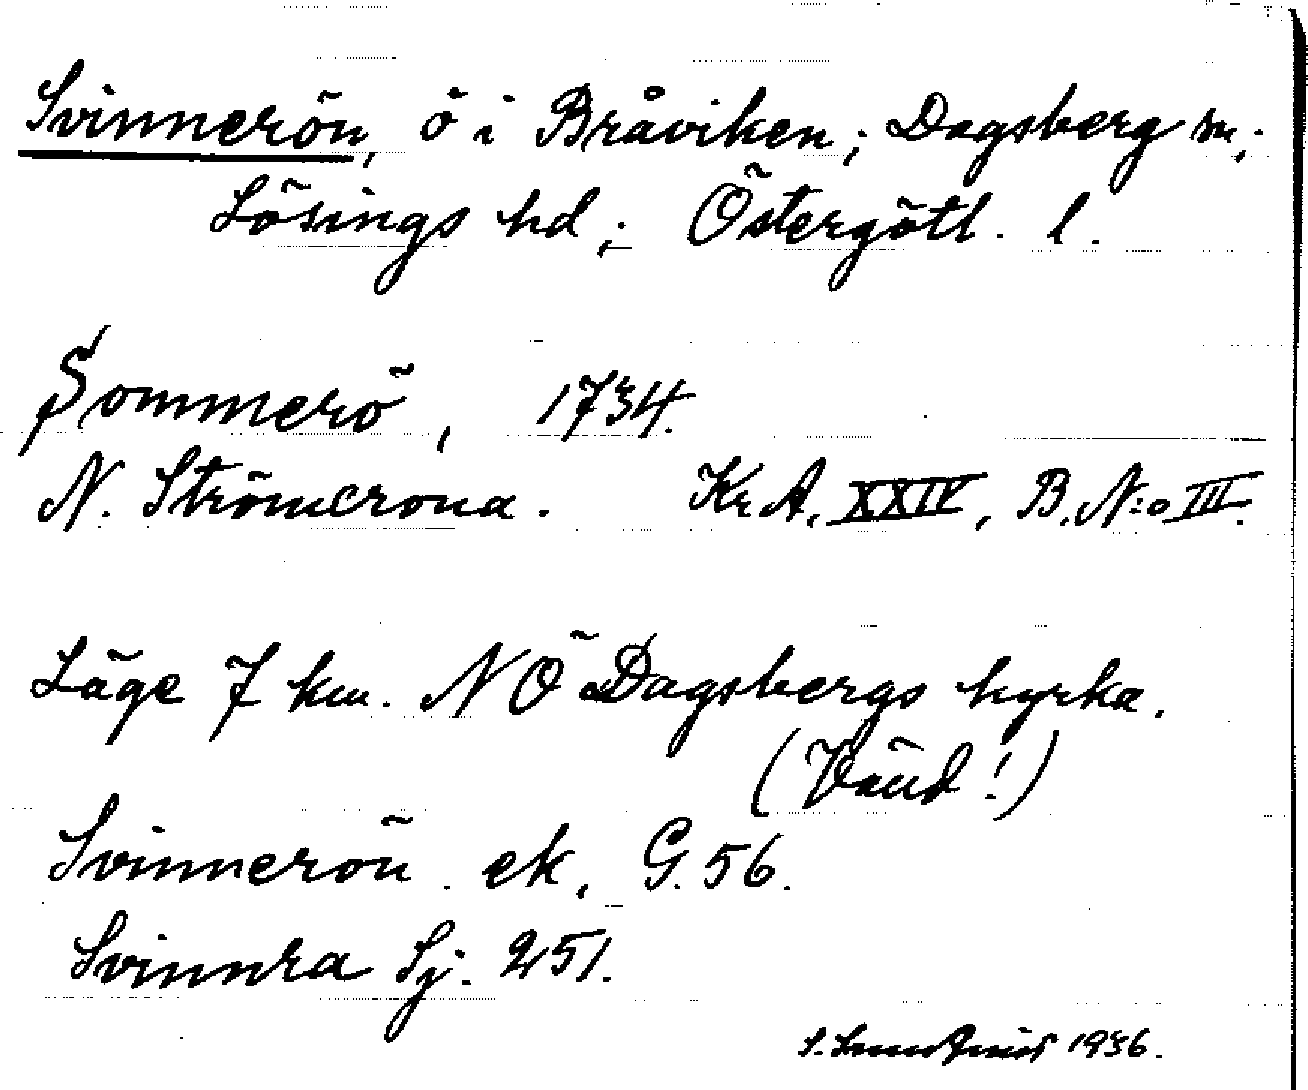 Svinnerön, ö i Bråviken; Dagsberg sn,;
Lösings hd; Östergötl. l.
Sommerö, 1734.
N. Strömcrona. Kr. A. XXIV, B. N:o III.
Läge 7 km. NÖ Dagsbergs kyrka.
(Vänd!)
Svinnerön ek. G. 56.
Svinnra Sj. 251.
S. 1936.